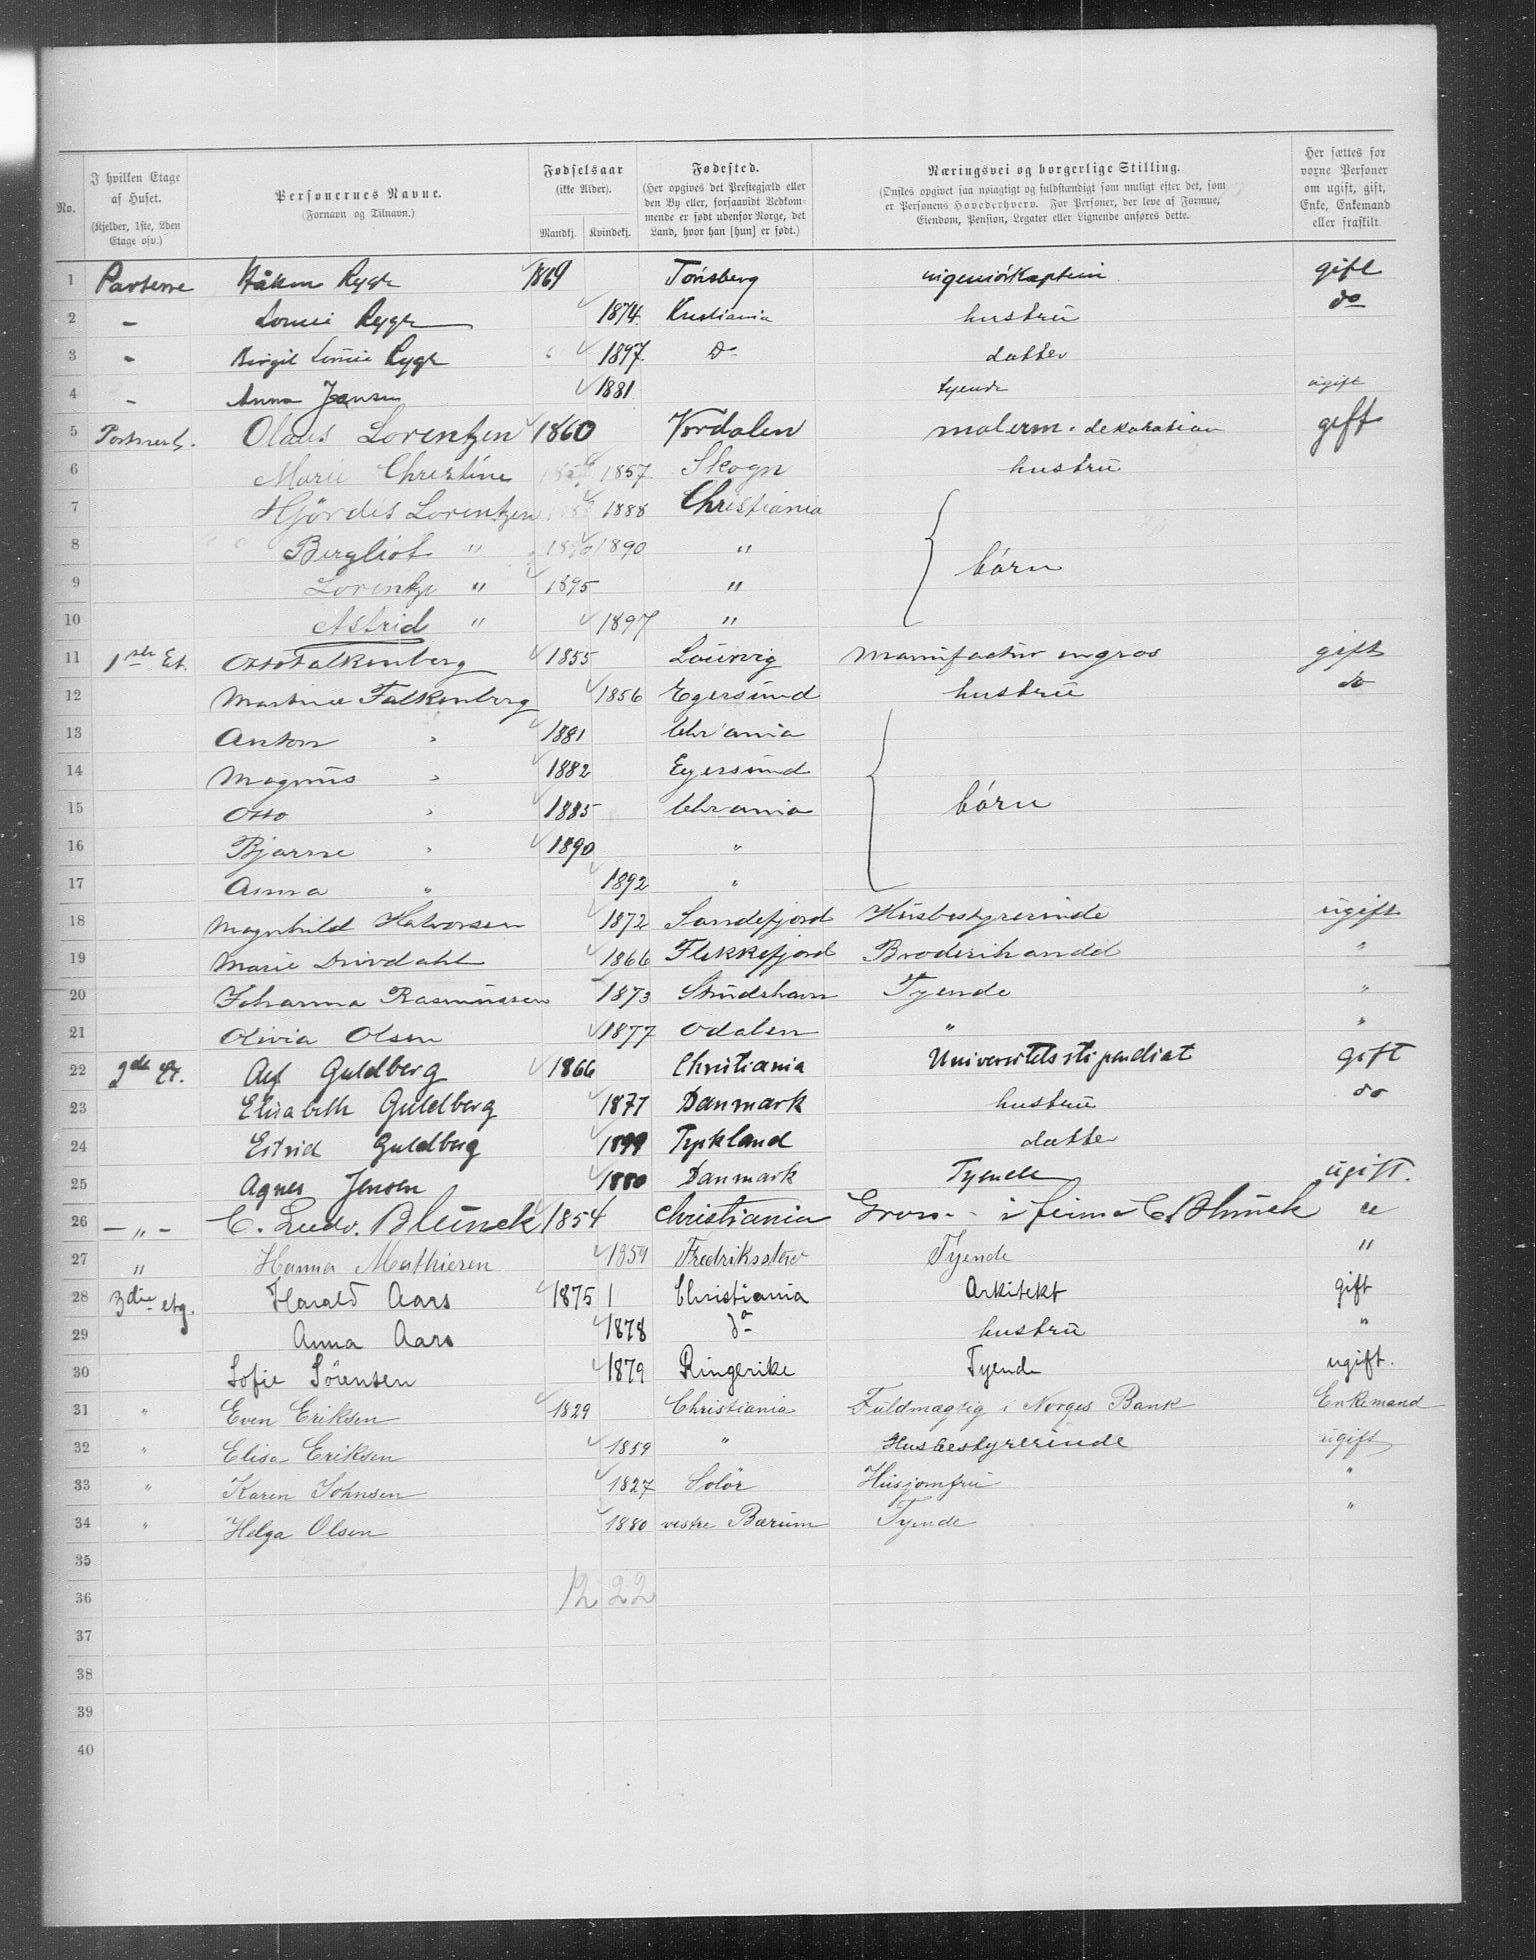 No.
I hvilken Etage af Huset. (Kjelder, 1ste, 2den Etage osv.)
Personernes Navne. (Fornavn og Tilnavn.)
Fødselsaar (ikke Alder). Mandkj. Kvindekj.
Fødested. (Her opgives det Prestegjæld eller den By eller, forsaavidt Vedkommende er født udenfor Norge, det Land, hvor han [hun] er født.)
Næringsvei og borgerlige Stilling. (Ønskes opgivet saa nøiagtigt og fuldstændigt som muligt efter det, som er Personens Hovederhverv. For Personer, der leve af Formue, Eiendom, Pension, Legater eller Lignende anføres dette.
Her sættes for voxne Personer om ugift, gift, Enke, Enkemand eller fraskilt.
1 Parterre Håkon Rygh 1869 Tönsberg ingeniörkaptein gift
2 - Rygh 1874 Kristiania hustru do
3 - Birgit Rygh 1897 Do datter
4 - Anna Jansen 1881 tyende ugift
5 Olaus Lorentzen 1860 Vordalen malerm. dekoration gift
6 Marie Christine 1857 Skogn hustru
7 Hjördis Lorentzen 1888 Christiania
8 Bergliot " 1890 " börn
9 Lorentze " 1895 "
10 Astrid " 1897 "
11 1ste Et. Otto Falkenberg 1855 Laurvig Manufactur engros gift
12 Martine Falkenberg 1856 Egersund hustru do
13 Anton " 1881 Chr ania
14 Magnus " 1882 Egersund
15 Otto " 1885 Chr ania börn
16 Bjarne " 1890 "
17 Anna " 1892 "
18 Magnhild Halvorsen 1872 Sandefjord Husbestyrerinde ugift
19 Marie Drivdahl 1866 Flekkefjord Broderihandel "
20 Johanna Rasmussen 1873 Tyende "
21 Olivia Olsen 1877 Odalen " "
22 2de Et. Alf Guldberg 1866 Christiania Universitetsstipendiat gift
23 Elisabeth Guldberg 1877 Danmark hustru do
24 Estrid Guldberg 1899 Tyrkland datter
25 Agnes Jensen 1880 Danmark Tyende ugift.
26 - " - C. Ludv. Blunck 1854 Christiania Gross. - i firma C. Blunck "
27 " Hanna Mathiesen 1859 Fredriksstad Tyende "
28 3die etg. Harald Aars 1875 1 Christiania Arkitekt gift
29 Anna Aars 1878 do hustru "
30 Sofie Sörensen 1879 Ringerike Tyende ugift.
31 " Even Eriksen 1829 Christiania Fuldmægtig i Norges Bank Enkemand
32 " Elisa Eriksen 1859 " Husbestyrerinde ugift
33 " Karen Johnsen 1827 Solör Husjomfru "
34 " Helga Olsen 1880 vestre Bærum Tyende "
35
36 12 22
37
38
39
40